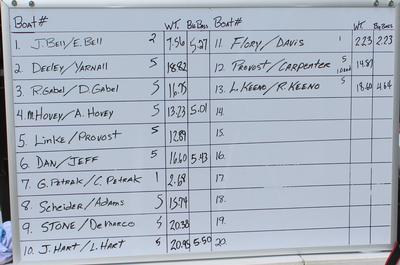 BOAT# WT. BIG BASS BOAT# WT. BIG BASS
1. J. BELL/E. BELL 2 7.56 5.27 11. FLORY/DAVIS 1 2.23 2.23
2. DEELEY/YARNALL 5 18.82 12. PROVOST/CARPENTER 5 1 DEAD 14.87
3. R. GABEL/D. GABEL 5 16.75 13. L. KEENO/R. KEENO 5 18.60 4.64
4. M. HOVEY/A. HOVEY 5 13.23 5.01 14.
5. LINKE/PROVOST 5 12.89 15.
6. DAN/JEFF 5 16.60 5.43 16.
7. G. PETRAK/C. PETRAK 1 2.68 17.
8. SCHEIDER/ADAMS 5 15.74 18.
9. STONE/DEMARCO 5 20.38 19.
10. J. HART/L. HART 5 20.95 5.50 20.